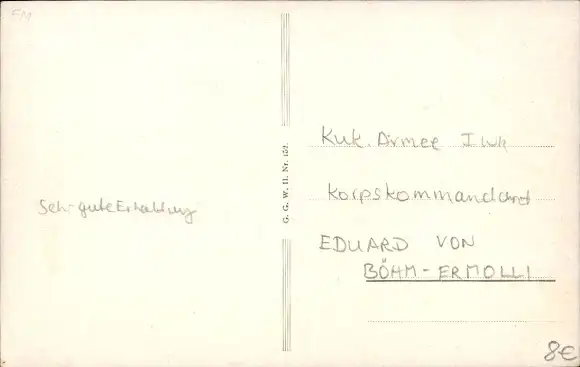 FM
Sehr gute Erhaltung
G. G. W. II. Nr. 152.
KuK. Armee I WK
Korpskommandant
EDUARD VON
BÖHM-ERMOLLI
8€